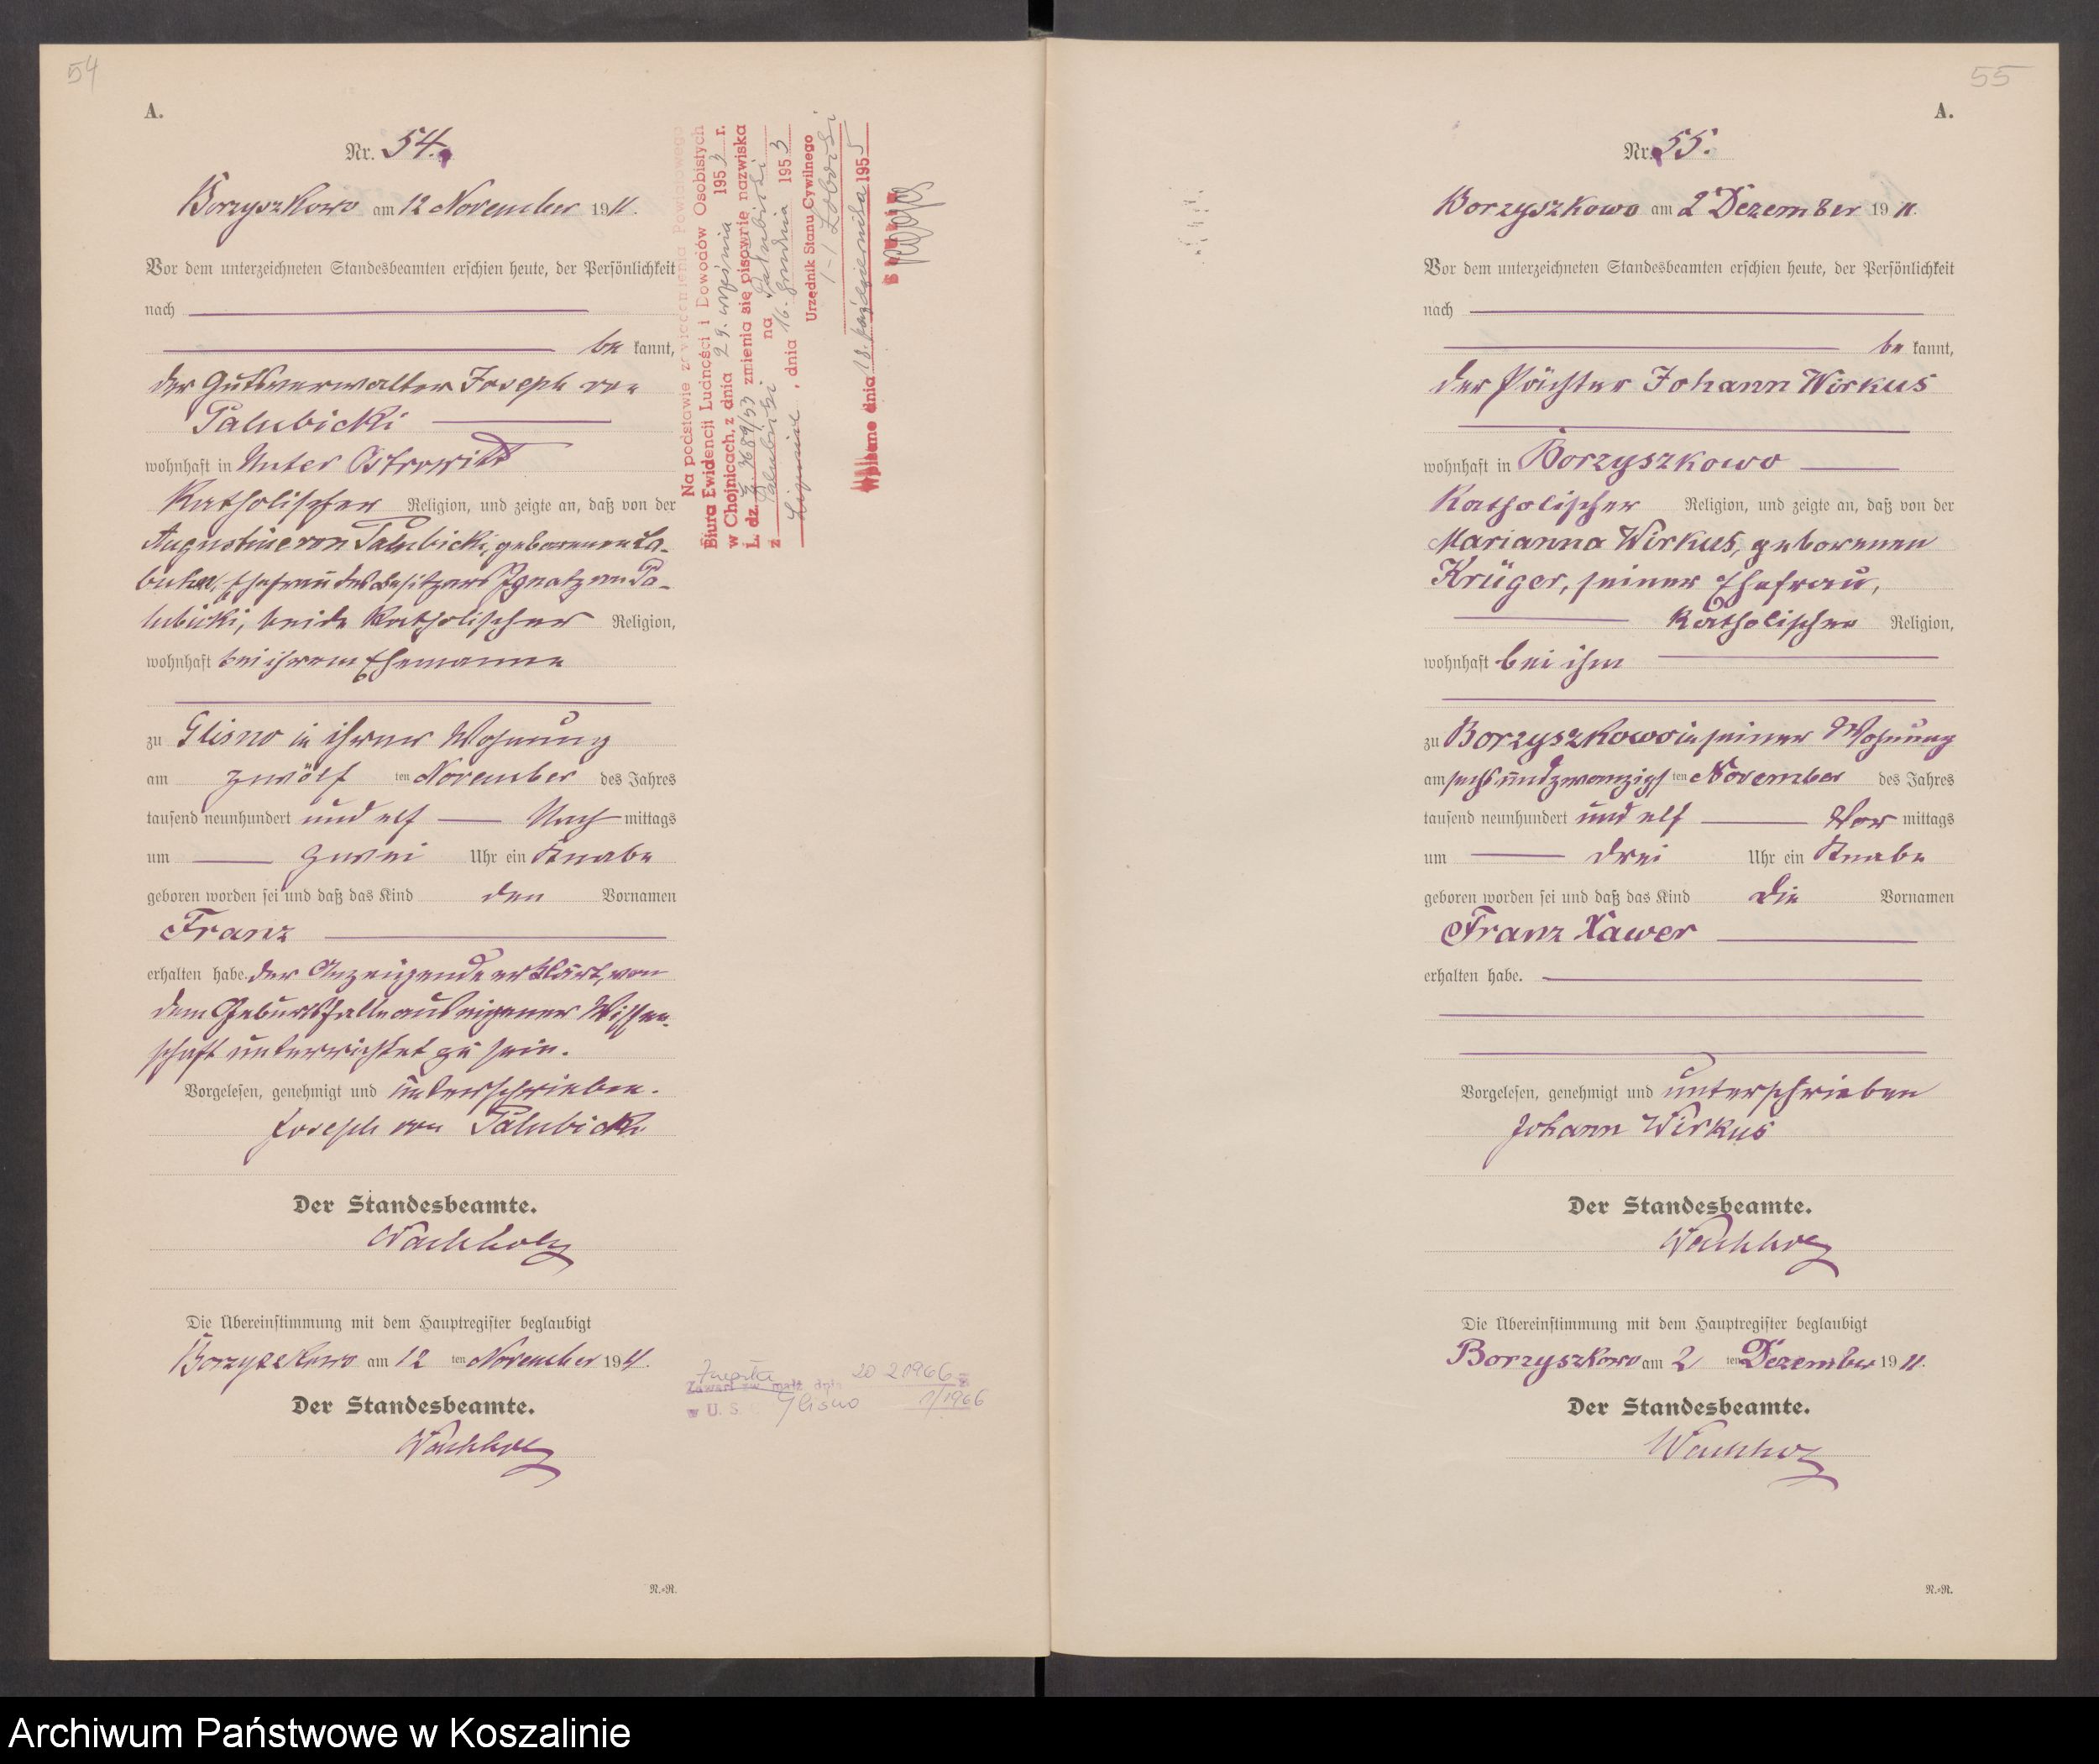 54
A.
Nr. 54.
Borzyszkowo am 12 November 1911.
Vor dem unterzeichneten Standesbeamten erschien heute, der Persönlichkeit
nach
be kannt,
der Gutsverwalter Joseph von
Palubicki
wohnhaft in Unter Ostrowitt
katholischer Religion, und zeigte an, daß von der
Augustine von Palubicki, geborenen
Ehefrau des Besitzers Ignatz von Pa-
lubicki, beide katholischer Religion,
wohnhaft bei ihrem Ehemanne
zu Glisno in ihrer Wohnung
am zwölf ten November des Jahres
tausend neunhundert und elf Nach mittags
um zwei Uhr ein Knabe
geboren worden sei und daß das Kind den Vornamen
Franz
erhalten habe. der Anzeigende erklärt, von
dem Geburtsfalle aus eigener Wissen-
schaft unterrichtet zu sein.
Vorgelesen, genehmigt und unterschrieben.
Joseph von Palubicki
Der Standesbeamte.
Wachholz
Die Übereinstimmung mit dem Hauptregister beglaubigt
Borzyszkowo am 12 ten November 1911.
Der Standesbeamte.
Wachholz
R.-R.
Na podstawie zawiadomienia Powiatowego
Biura Ewidencji Ludności i Dowodów Osobistych
w Chojnicach, z dnia 29. września 1953 r.
L. dz. 3689/53 zmienia się pisownię nazwiska
z Palubicki na Pałubicki
Lipnica, dnia 16. grudnia 1953
Urzędnik Stanu Cywilnego
Wpisano dnia 18. października 1955
Zawarł zw. małż dnia 20 2 1966 r.
w U. S. C. Glisno 1/1966
55
A.
Nr. 55.
Borzyszkowo am 2 Dezember 1911.
Vor dem unterzeichneten Standesbeamten erschien heute, der Persönlichkeit
nach
be kannt,
der Pächter Johann Wirkus
wohnhaft in Borzyszkowo
katholischer Religion, und zeigte an, daß von der
Marianna Wirkus, geborenen
Krüger, seiner Ehefrau,
katholischer Religion,
wohnhaft bei ihm
zu Borzyszkowo in seiner Wohnung
am sechsundzwanzigs ten November des Jahres
tausend neunhundert und elf Vor mittags
um drei Uhr ein Knabe
geboren worden sei und daß das Kind die Vornamen
Franz Xawer
erhalten habe.
Vorgelesen, genehmigt und unterschrieben
Johann Wirkus
Der Standesbeamte.
Wachholz
Die Übereinstimmung mit dem Hauptregister beglaubigt
Borzyszkowo am 2 ten Dezember 1911.
Der Standesbeamte.
Wachholz
R.-R.
Archiwum Państwowe w Koszalinie